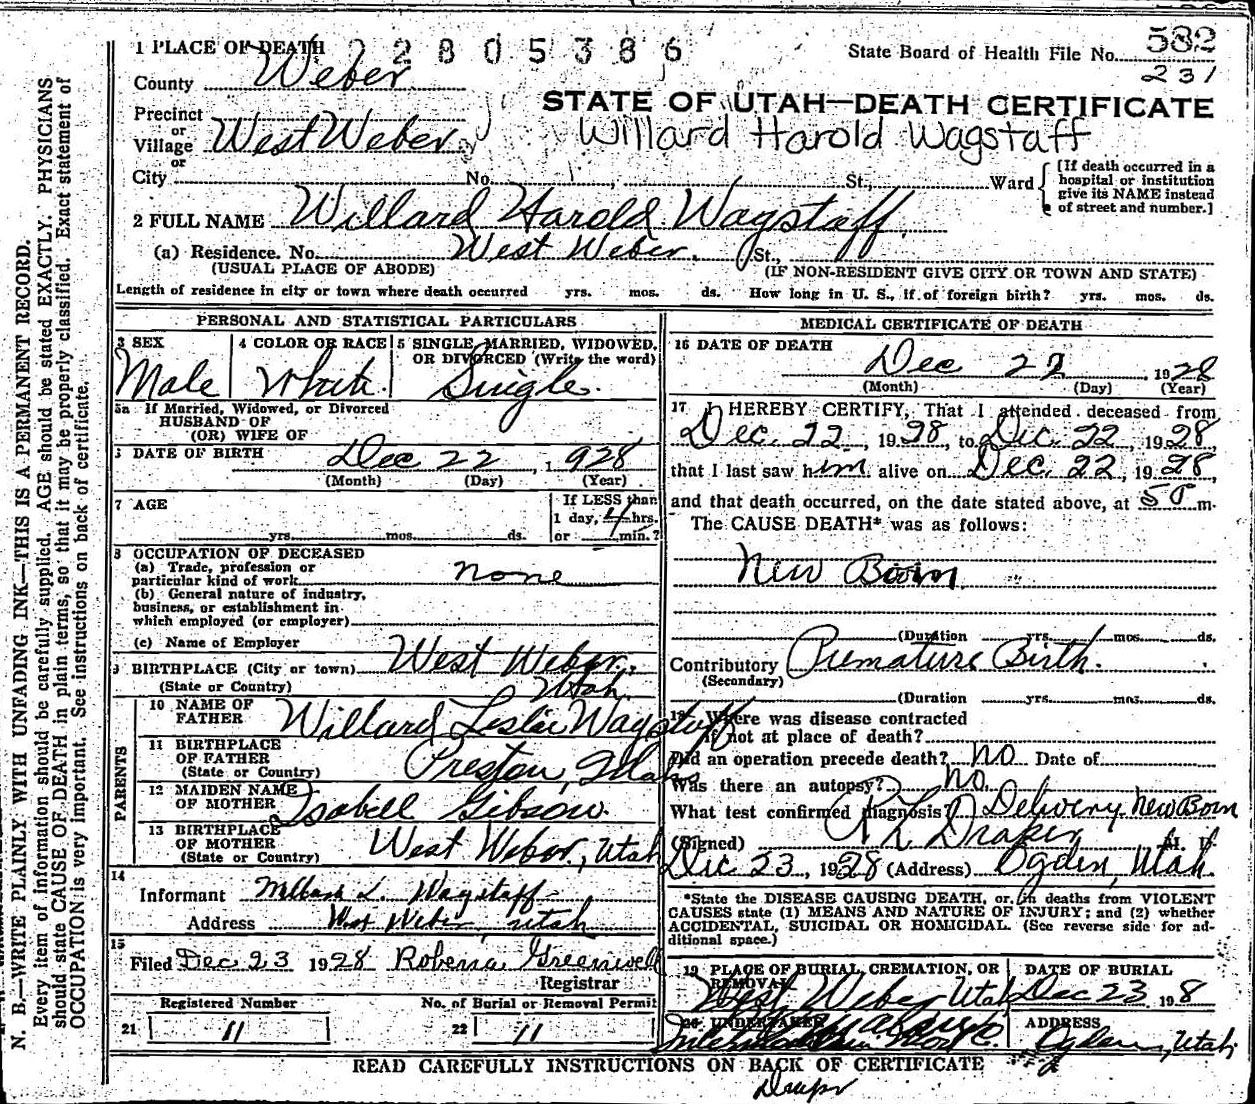 N. B.—WRITE PLAINLY WITH UNFADING INK—THIS IS A PERMANENT RECORD.
Every item of information should be carefully supplied. AGE should be stated EXACTLY. PHYSICIANS
should state CAUSE OF DEATH in plain terms, so that it may be properly classified. Exact statement of
OCCUPATION is very important. See instructions on back of certificate.
1 PLACE OF DEATH 22805386 State Board of Health File No. 582
County Weber 231
STATE OF UTAH—DEATH CERTIFICATE
Precinct
or
Village West Weber Willard Harold Wagstaff
or
City No. St., Ward
[If death occurred in a
hospital or institution
give its NAME instead
of street and number.]
2 FULL NAME Willard Harold Wagstaff.
(a) Residence. No. West Weber. St.,
(USUAL PLACE OF ABODE) (IF NON-RESIDENT GIVE CITY OR TOWN AND STATE)
Length of residence in city or town where death occurred yrs. mos. ds. How long in U. S., if of foreign birth? yrs. mos. ds.
PERSONAL AND STATISTICAL PARTICULARS
3 SEX
Male
4 COLOR OR RACE
White.
5 SINGLE, MARRIED, WIDOWED,
OR DIVORCED (Write the word)
Single.
5a If Married, Widowed, or Divorced
HUSBAND OF
(OR) WIFE OF
DATE OF BIRTH Dec 22, 1928
(Month) (Day) (Year)
7 AGE
yrs. mos. ds.
If LESS than
1 day, 4 hrs.
or min.?
8 OCCUPATION OF DECEASED
(a) Trade, profession or
particular kind of work none
(b) General nature of industry,
business, or establishment in
which employed (or employer)
(c) Name of Employer
9 BIRTHPLACE (City or town) West Weber,
(State or Country) Utah.
PARENTS
10 NAME OF
FATHER Willard Leslie Wagstaff
11 BIRTHPLACE
OF FATHER
(State or Country) Preston, Idaho
12 MAIDEN NAME
OF MOTHER Isabell Gibson.
13 BIRTHPLACE
OF MOTHER
(State or Country) West Weber, Utah
14
Informant L. Wagstaff
Address West Weber, Utah
15
Filed Dec 23 1928 Greenwell
Registrar
Registered Number No. of Burial or Removal Permit
21 11 22 11
MEDICAL CERTIFICATE OF DEATH
16 DATE OF DEATH
Dec 22, 1928
(Month) (Day) (Year)
17 I HEREBY CERTIFY, That I attended deceased from
Dec. 22, 1928, to Dec. 22, 1928,
that I last saw him alive on Dec. 22, 1928,
and that death occurred, on the date stated above, at m.
The CAUSE DEATH* was as follows:
New Born
(Duration yrs. mos. ds.
Contributory Premature Birth.
(Secondary)
(Duration yrs. mos. ds.
Where was disease contracted
if not at place of death?
Did an operation precede death? No Date of
Was there an autopsy? No.
What test confirmed diagnosis? Delivery New Born
(Signed) Draper M. D.
Dec 23, 1928 (Address) Ogden, Utah.
*State the DISEASE CAUSING DEATH, or, in deaths from VIOLENT
CAUSES state (1) MEANS AND NATURE OF INJURY; and (2) whether
ACCIDENTAL, SUICIDAL OR HOMICIDAL. (See reverse side for ad-
ditional space.)
19 PLACE OF BURIAL, CREMATION, OR
REMOVAL
West Weber Utah
DATE OF BURIAL
Dec 23, 1928
20 UNDERTAKER
ADDRESS
Ogden, Utah
READ CAREFULLY INSTRUCTIONS ON BACK OF CERTIFICATE